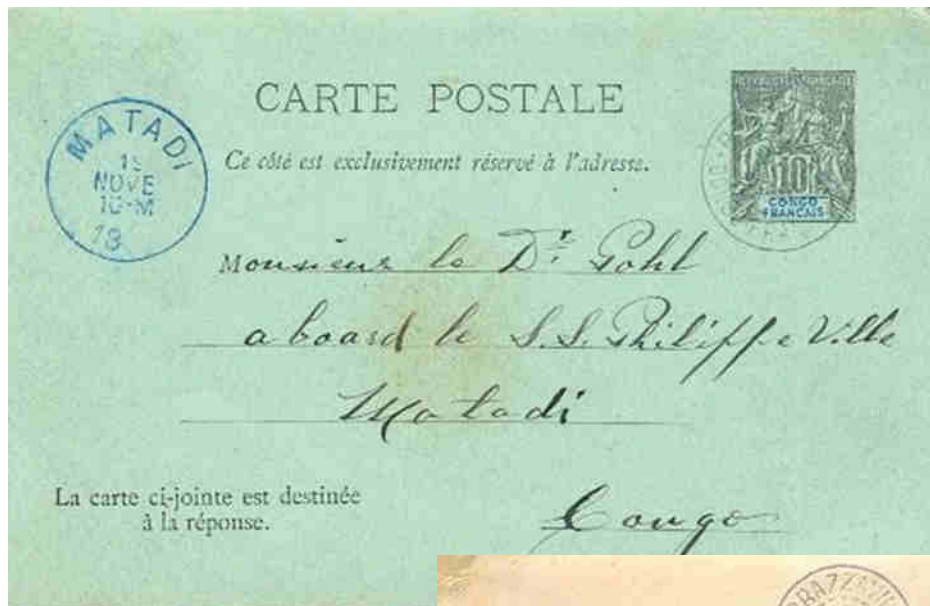 CARTE POSTALE
Ce côté est exclusivement réservé à l'adresse.
MATADI
15
NOVE
10-M
18
RÉPUBLIQUE FRANÇAISE
10
CONGO
FRANÇAIS
Monsieur le Dr. Gohl
a board le S.S. Philippe Ville
Matadi
Congo
La carte ci-jointe est destinée
à la réponse.